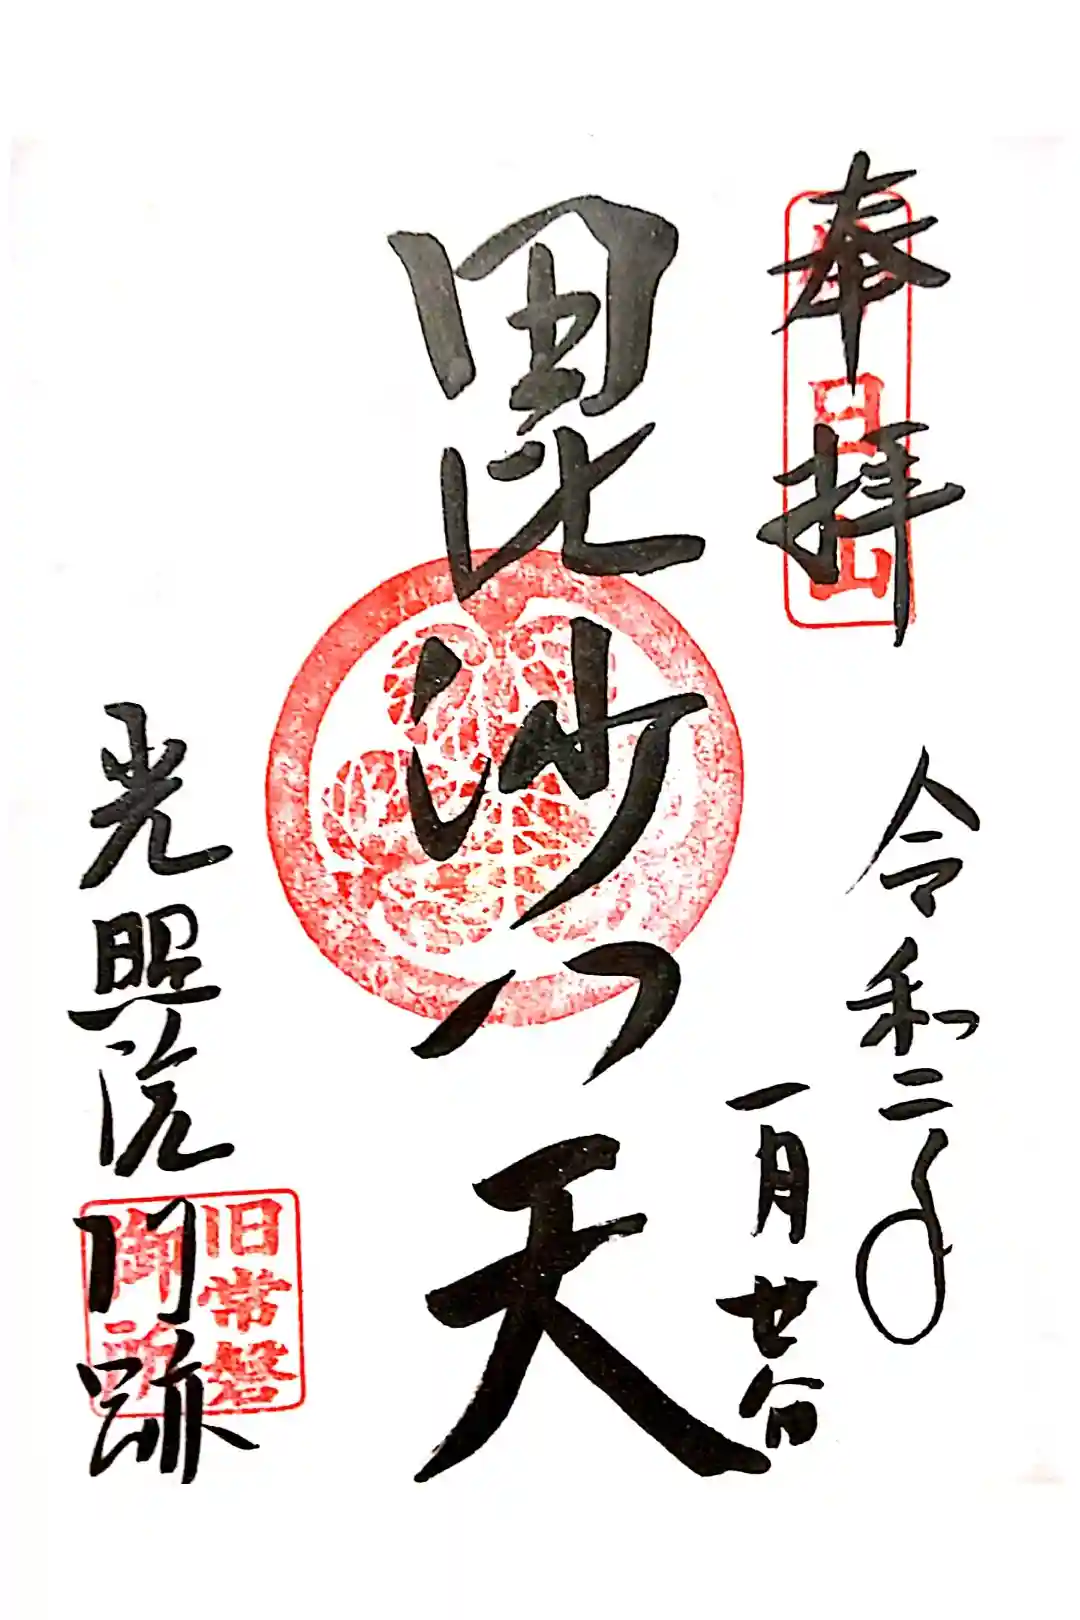 奉拝
令和二年
一月廿
毘沙門天
光照院
門跡
旧常磐
御所
日山